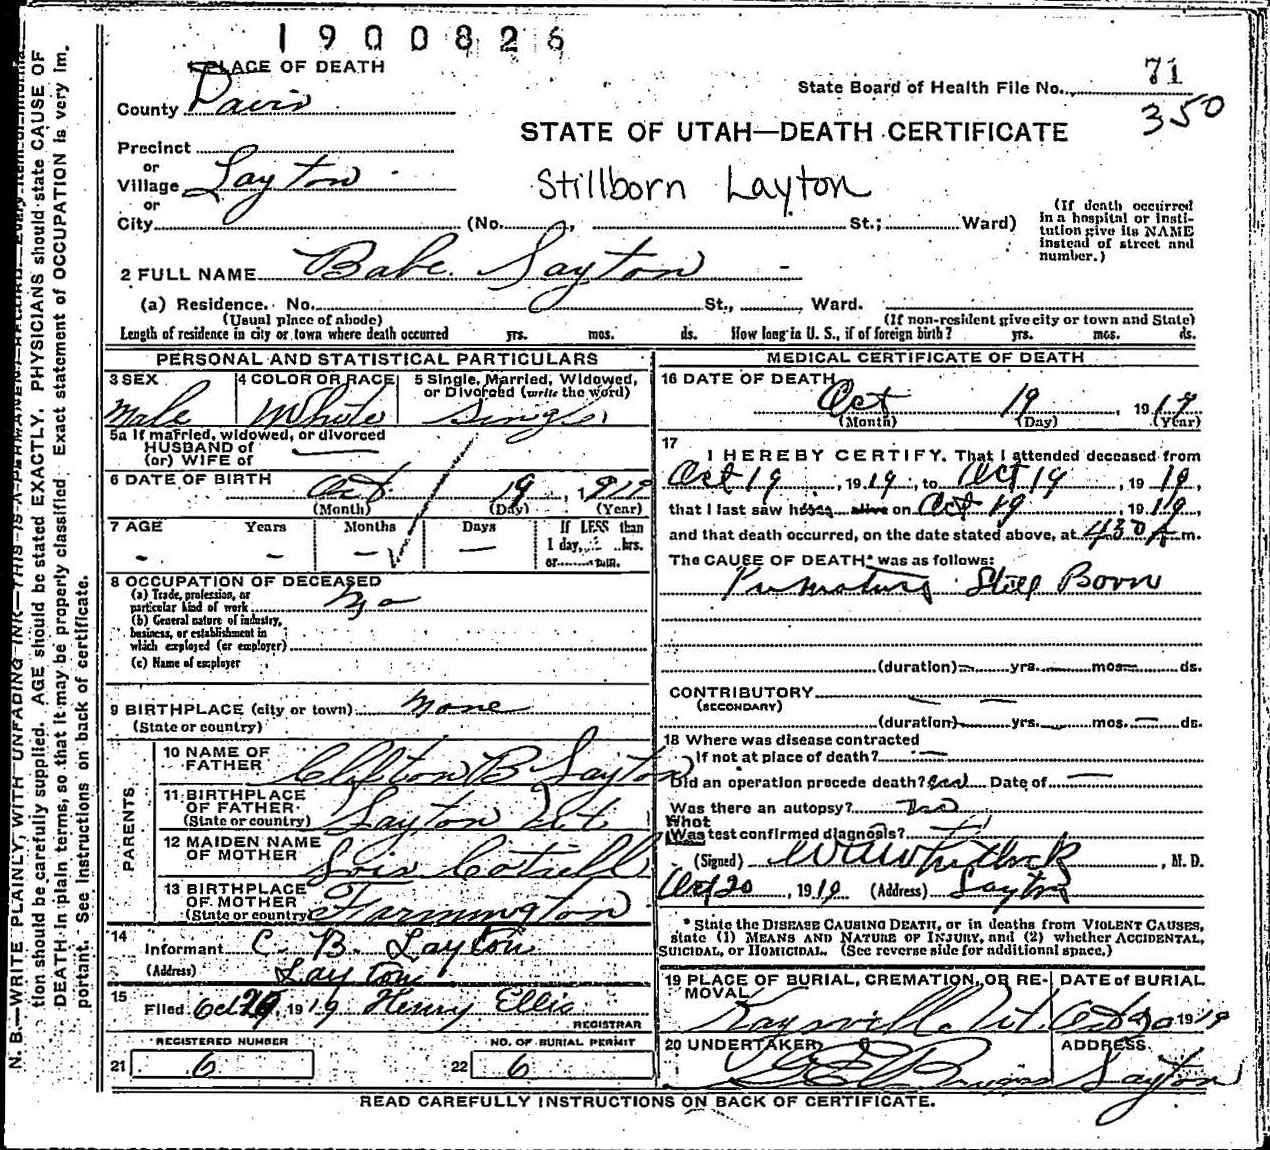 1900826
PLACE OF DEATH
State Board of Health File No. 71
350
County Davis
STATE OF UTAH—DEATH CERTIFICATE
Precinct
or
Village Layton
Stillborn Layton
or
City (No. St.; Ward)
(If death occurred in a hospital or institution give its NAME instead of street and number.)
2 FULL NAME Babe Layton
(a) Residence. No. St., Ward.
(Usual place of abode) (If non-resident give city or town and State)
Length of residence in city or town where death occurred yrs. mos. ds. How long in U. S., if of foreign birth? yrs. mos. ds.
PERSONAL AND STATISTICAL PARTICULARS
3 SEX Male
4 COLOR OR RACE White
5 Single, Married, Widowed, or Divorced (write the word) Single
5a If married, widowed, or divorced
HUSBAND of
(or) WIFE of
6 DATE OF BIRTH Oct 19, 1919
(Month) (Day) (Year)
7 AGE Years Months Days If LESS than
- - - - 1 day, hrs.
or min.
8 OCCUPATION OF DECEASED
(a) Trade, profession, or
particular kind of work no
(b) General nature of industry,
business, or establishment in
which employed (or employer)
(c) Name of employer
9 BIRTHPLACE (city or town) none
(State or country)
PARENTS
10 NAME OF
FATHER Clifton B Layton
11 BIRTHPLACE
OF FATHER
(State or country) Layton Ut
12 MAIDEN NAME
OF MOTHER Lois Cotrell
13 BIRTHPLACE
OF MOTHER
(State or country) Farmington
14
Informant C. B. Layton
(Address) Layton
15
Filed Oct 20, 1919 Henry Ellis
REGISTRAR
REGISTERED NUMBER
21 6
NO. OF BURIAL PERMIT
22 6
MEDICAL CERTIFICATE OF DEATH
16 DATE OF DEATH
Oct 19, 1919
(Month) (Day) (Year)
17
I HEREBY CERTIFY, That I attended deceased from
Oct 19, 1919, to Oct 19, 1919,
that I last saw h alive on Oct 19, 1919,
and that death occurred, on the date stated above, at 430 A m.
The CAUSE OF DEATH* was as follows:
Premature Still Born
(duration) yrs. mos. ds.
CONTRIBUTORY
(SECONDARY)
(duration) yrs. mos. ds.
18 Where was disease contracted
If not at place of death?
Did an operation precede death? no Date of
Was there an autopsy? no
What
Was test confirmed diagnosis?
(Signed) , M. D.
Oct 20, 1919 (Address) Layton
*State the DISEASE CAUSING DEATH, or in deaths from VIOLENT CAUSES,
state (1) MEANS AND NATURE OF INJURY, and (2) whether ACCIDENTAL,
SUICIDAL, or HOMICIDAL. (See reverse side for additional space.)
19 PLACE OF BURIAL, CREMATION, OR REMOVAL Kaysville Ut.
DATE of BURIAL Oct 20 1919
20 UNDERTAKER
ADDRESS Layton
READ CAREFULLY INSTRUCTIONS ON BACK OF CERTIFICATE.
N. B.—WRITE PLAINLY, WITH UNFADING INK—THIS IS A PERMANENT RECORD. Every item of informa-
tion should be carefully supplied. AGE should be stated EXACTLY. PHYSICIANS should state CAUSE OF
DEATH in plain terms, so that it may be properly classified. Exact statement of OCCUPATION is very im-
portant. See instructions on back of certificate.